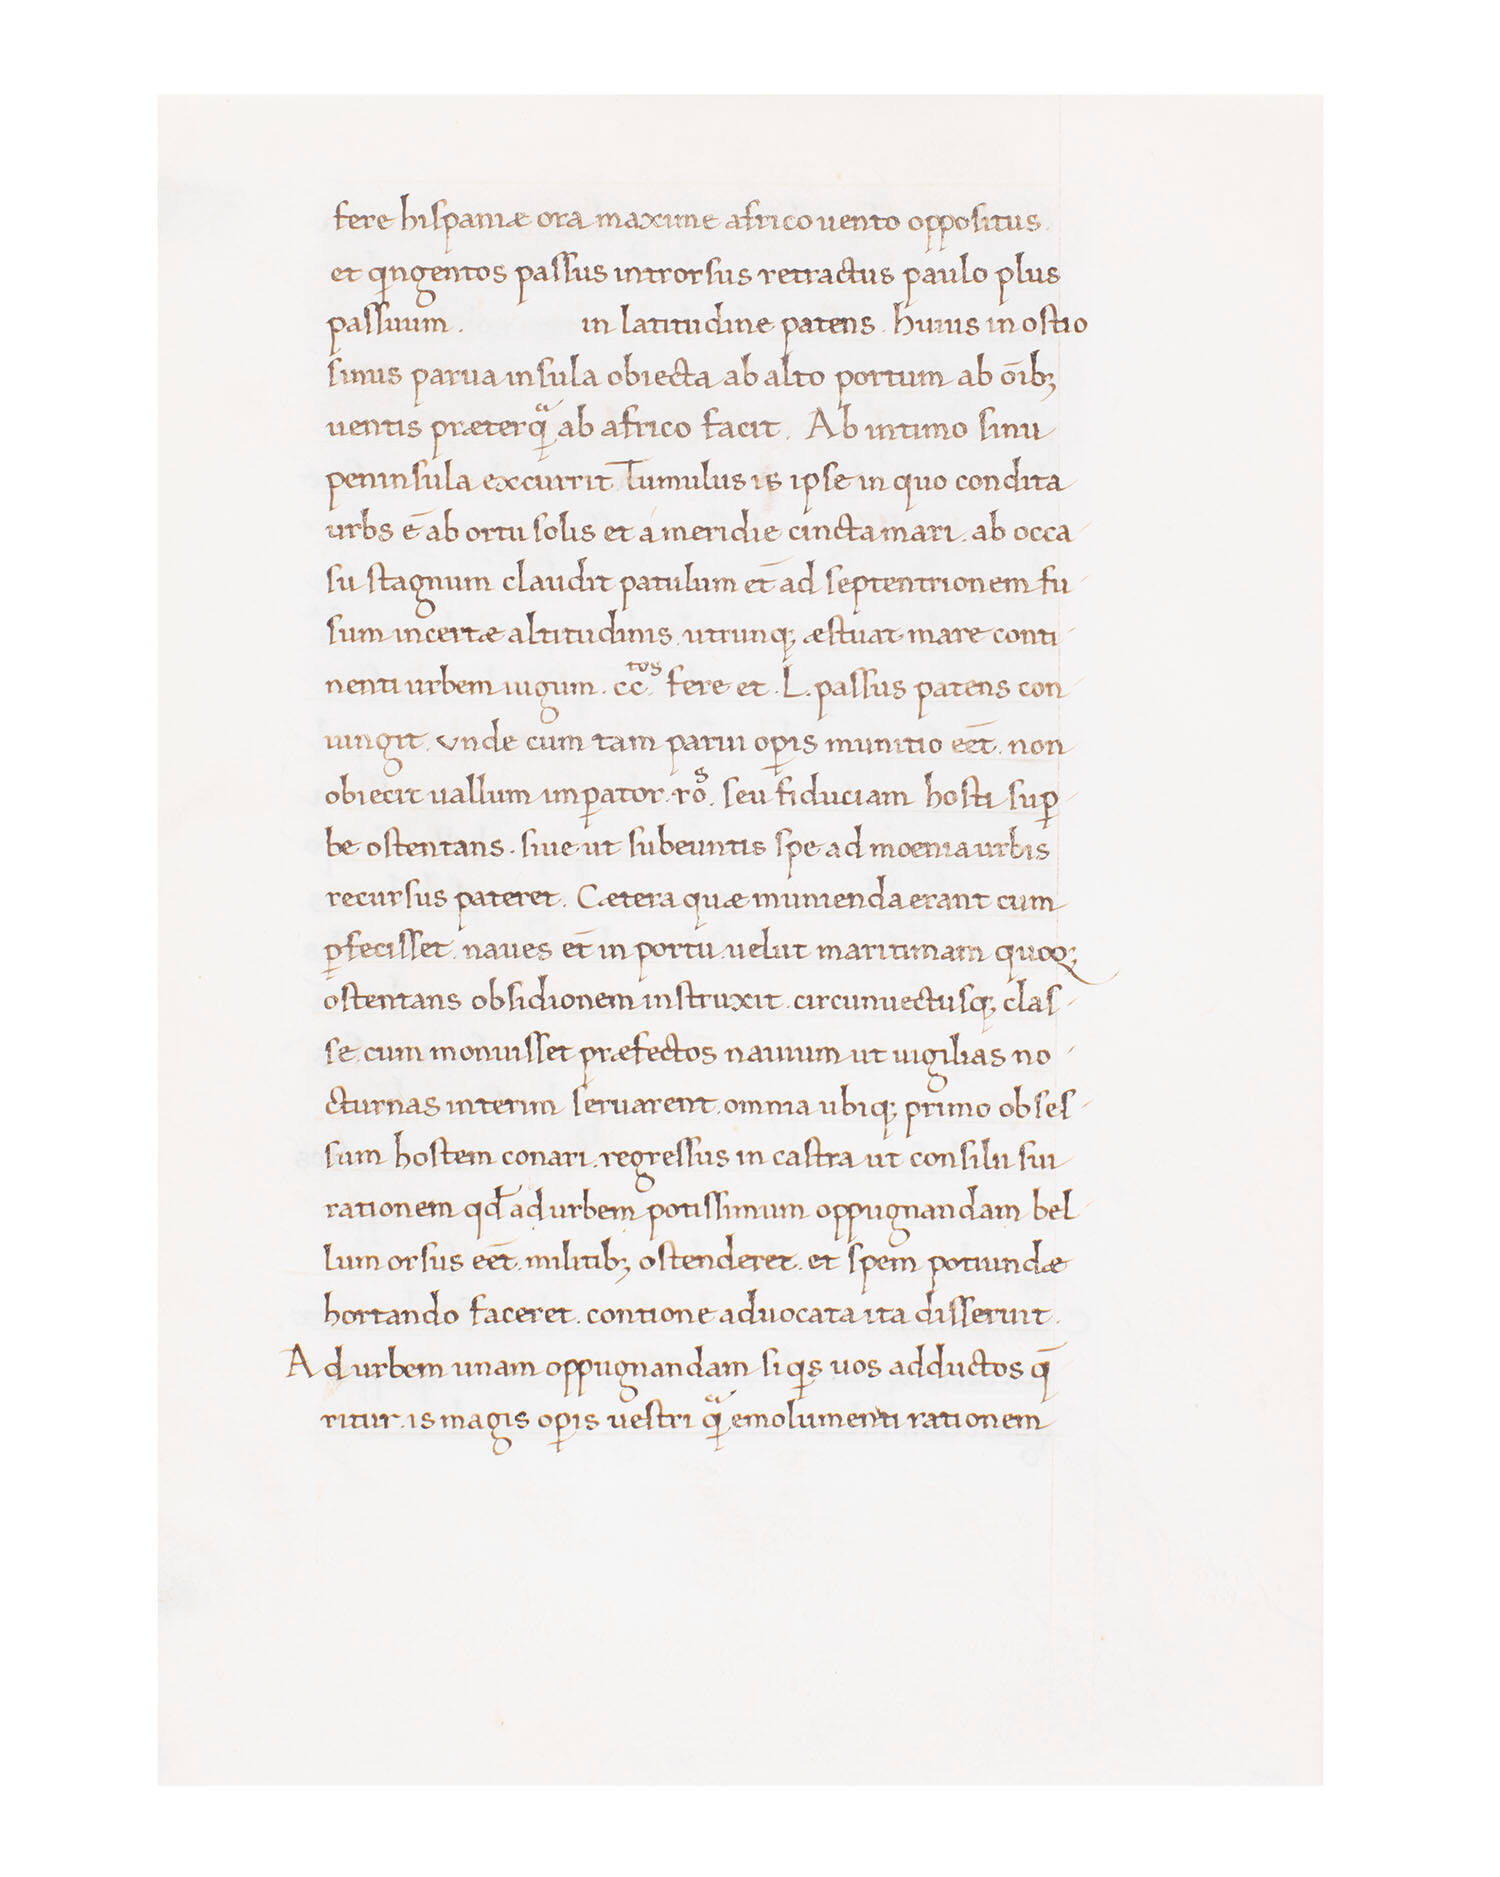 fere hispaniæ ora maxime africo uento oppositus.
et qingentos passus introrsus retractus paulo plus
passuum. in latitudine patens. huius in ostio
sinus parua insula obiecta ab alto portum ab oībꝫ
uentis præterqͣ ab africo facit. Ab intimo sinu
peninsula excurrit Tumulus is ipse in quo condita
urbs ē ab ortu solis et a meridie cincta mari. ab occa
su stagnum claudit patulum et̄ ad septentrionem fu
sum incertæ altitudinis. utrunqꝫ æstuat mare conti
nenti urbem iugum. cc.tos fere et .L. passus patens con
iungit. vnde cum tam parui oꝑis munitio eēt. non
obiecit uallum imꝑator. ros. seu fiduciam hosti suꝑ
be ostentans. siue ut subeuntis spe ad moenia urbis
recursus pateret. Cætera quæ munienda erant cum
ꝑfecisset. naues et̄ in portu uelut maritimam quoqꝫ
ostentans obsidionem instruxit. circunuectusqꝫ clas
se cum monuisset præfectos nauium ut uigilias no
cturnas interim seruarent. omnia ubiqꝫ primo obses
sum hostem conari. regressus in castra ut consilii sui
rationem qđ ad urbem potissimum oppugnandam bel
lum orsus eēt. militibꝫ ostenderet. et spem potiundæ
hortando faceret. contione aduocata ita disseruit.
Ad urbem unam oppugnandam si qis uos adductos q̄
ritur. is magis oꝑis uestri qͣ emolumenti rationem